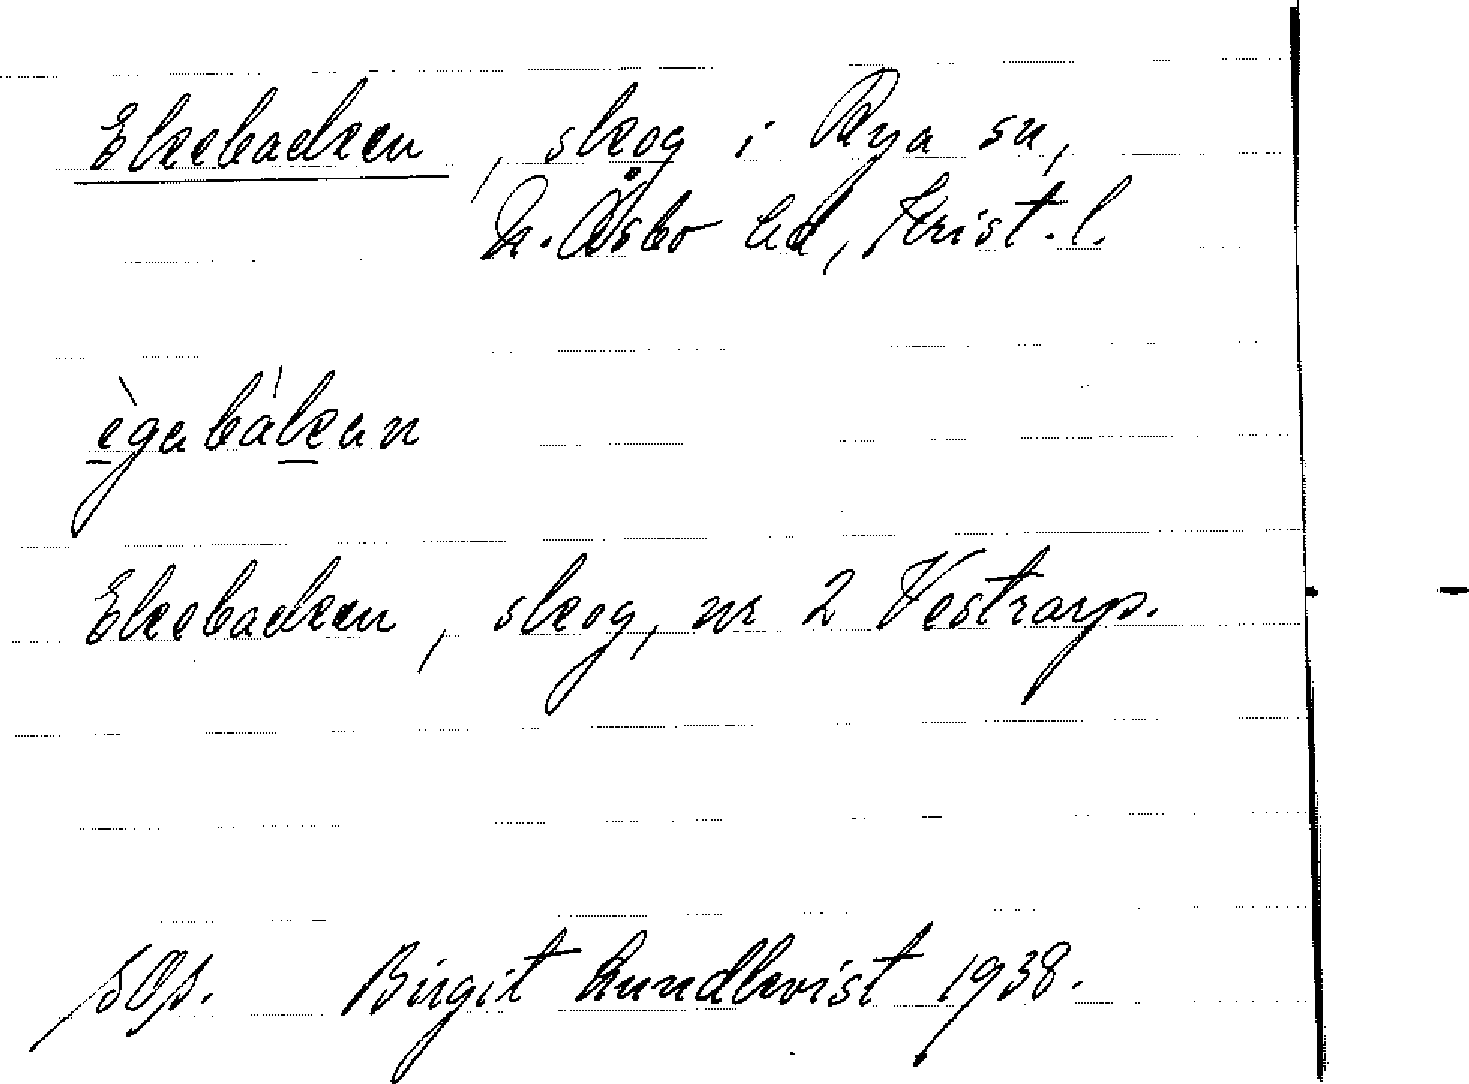 Ekebacken, skog i Rya sn,
N. Åsbo hd, Krist. l.
ègabákan
Ekebacken, skog, nr 2 Vestrarp.
Birgit Lundkvist 1938.